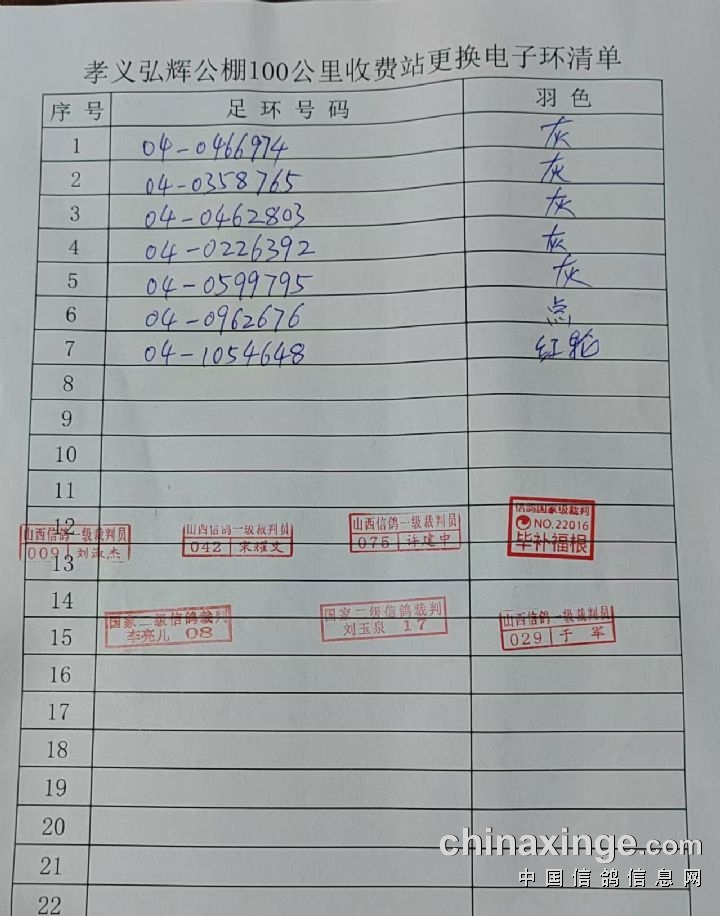 孝义弘辉公棚100公里收费站更换电子环清单
序号 足环号码 羽色
1 04-0466974 灰
2 04-0358765 灰
3 04-0462803 灰
4 04-0226392 灰
5 04-0599795 灰
6 04-0962676 点
7 04-1054648 红轮
8
9
10
11
12
山西信鸽一级裁判员 山西信鸽一级裁判员 山西信鸽一级裁判员 信鸽国家级裁判
009 刘淑杰 042 宋耀文 075 许建中 NO.22016
毕补福根
13
14
国家二级信鸽裁判 国家二级信鸽裁判 山西信鸽一级裁判员
李亮儿 08 刘玉泉 17 029 于军
15
16
17
18
19
20
21
22
chinaxinge.com
中国信鸽信息网